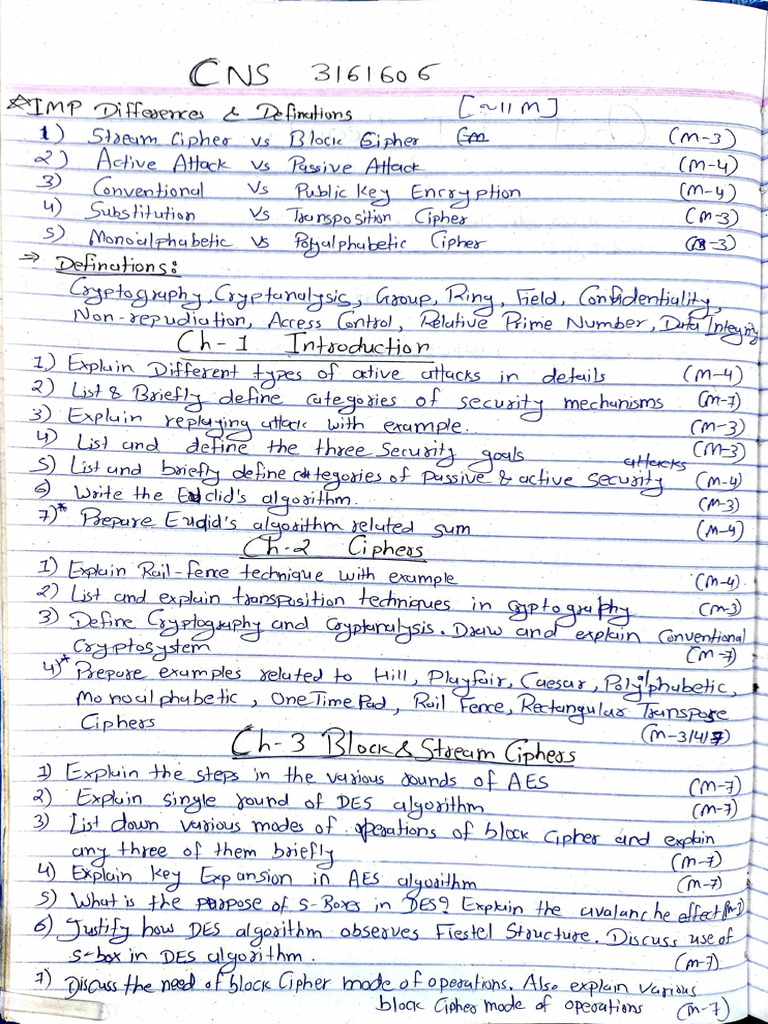 CNS 3161606
☆ IMP Differences & Definations [~11M]
1) Stream Cipher vs Block Cipher (M-3)
2) Active Attack vs Passive Attack (M-4)
3) Conventional Vs Public Key Encryption (M-4)
4) Substitution Vs Transposition Cipher (M-3)
5) Monoalphabetic vs Polyalphabetic Cipher (M-3)
⇒ Definations:
Cryptography, Cryptanalysis, Group, Ring, Field, Confidentiality,
Non-repudiation, Access Control, Relative Prime Number, Data Integrity
Ch-1 Introduction
1) Explain Different types of active attacks in details (M-4)
2) List & Briefly define categories of security mechanisms (M-7)
3) Explain replaying attack with example. (M-3)
4) List and define the three Security goals (M-3)
5) List and briefly define categories of passive & active security attacks (M-4)
6) Write the Euclid's algorithm. (M-3)
7)* Prepare Euclid's algorithm related sum (M-4)
Ch-2 Ciphers
1) Explain Rail-fence technique with example (M-4)
2) List and explain transposition techniques in cryptography (M-3)
3) Define Cryptography and Cryptanalysis. Draw and explain Conventional
Cryptosystem (M-7)
4)* Prepare examples related to Hill, Playfair, Caesar, Polyalphabetic,
Monoalphabetic, One Time Pad, Rail Fence, Rectangular Transpose
Ciphers (M-3/4/7)
Ch-3 Block & Stream Ciphers
1) Explain the steps in the various rounds of AES (M-7)
2) Explain single round of DES algorithm (M-7)
3) List down various modes of operations of block cipher and explain
any three of them briefly (M-7)
4) Explain Key Expansion in AES algorithm (M-7)
5) What is the purpose of S-Boxes in DES? Explain the avalanche effect
6) Justify how DES algorithm observes Fiestel Structure. Discuss use of
S-box in DES algorithm. (M-7)
7) Discuss the need of block Cipher mode of operations. Also explain various
block Cipher mode of operations (M-7)